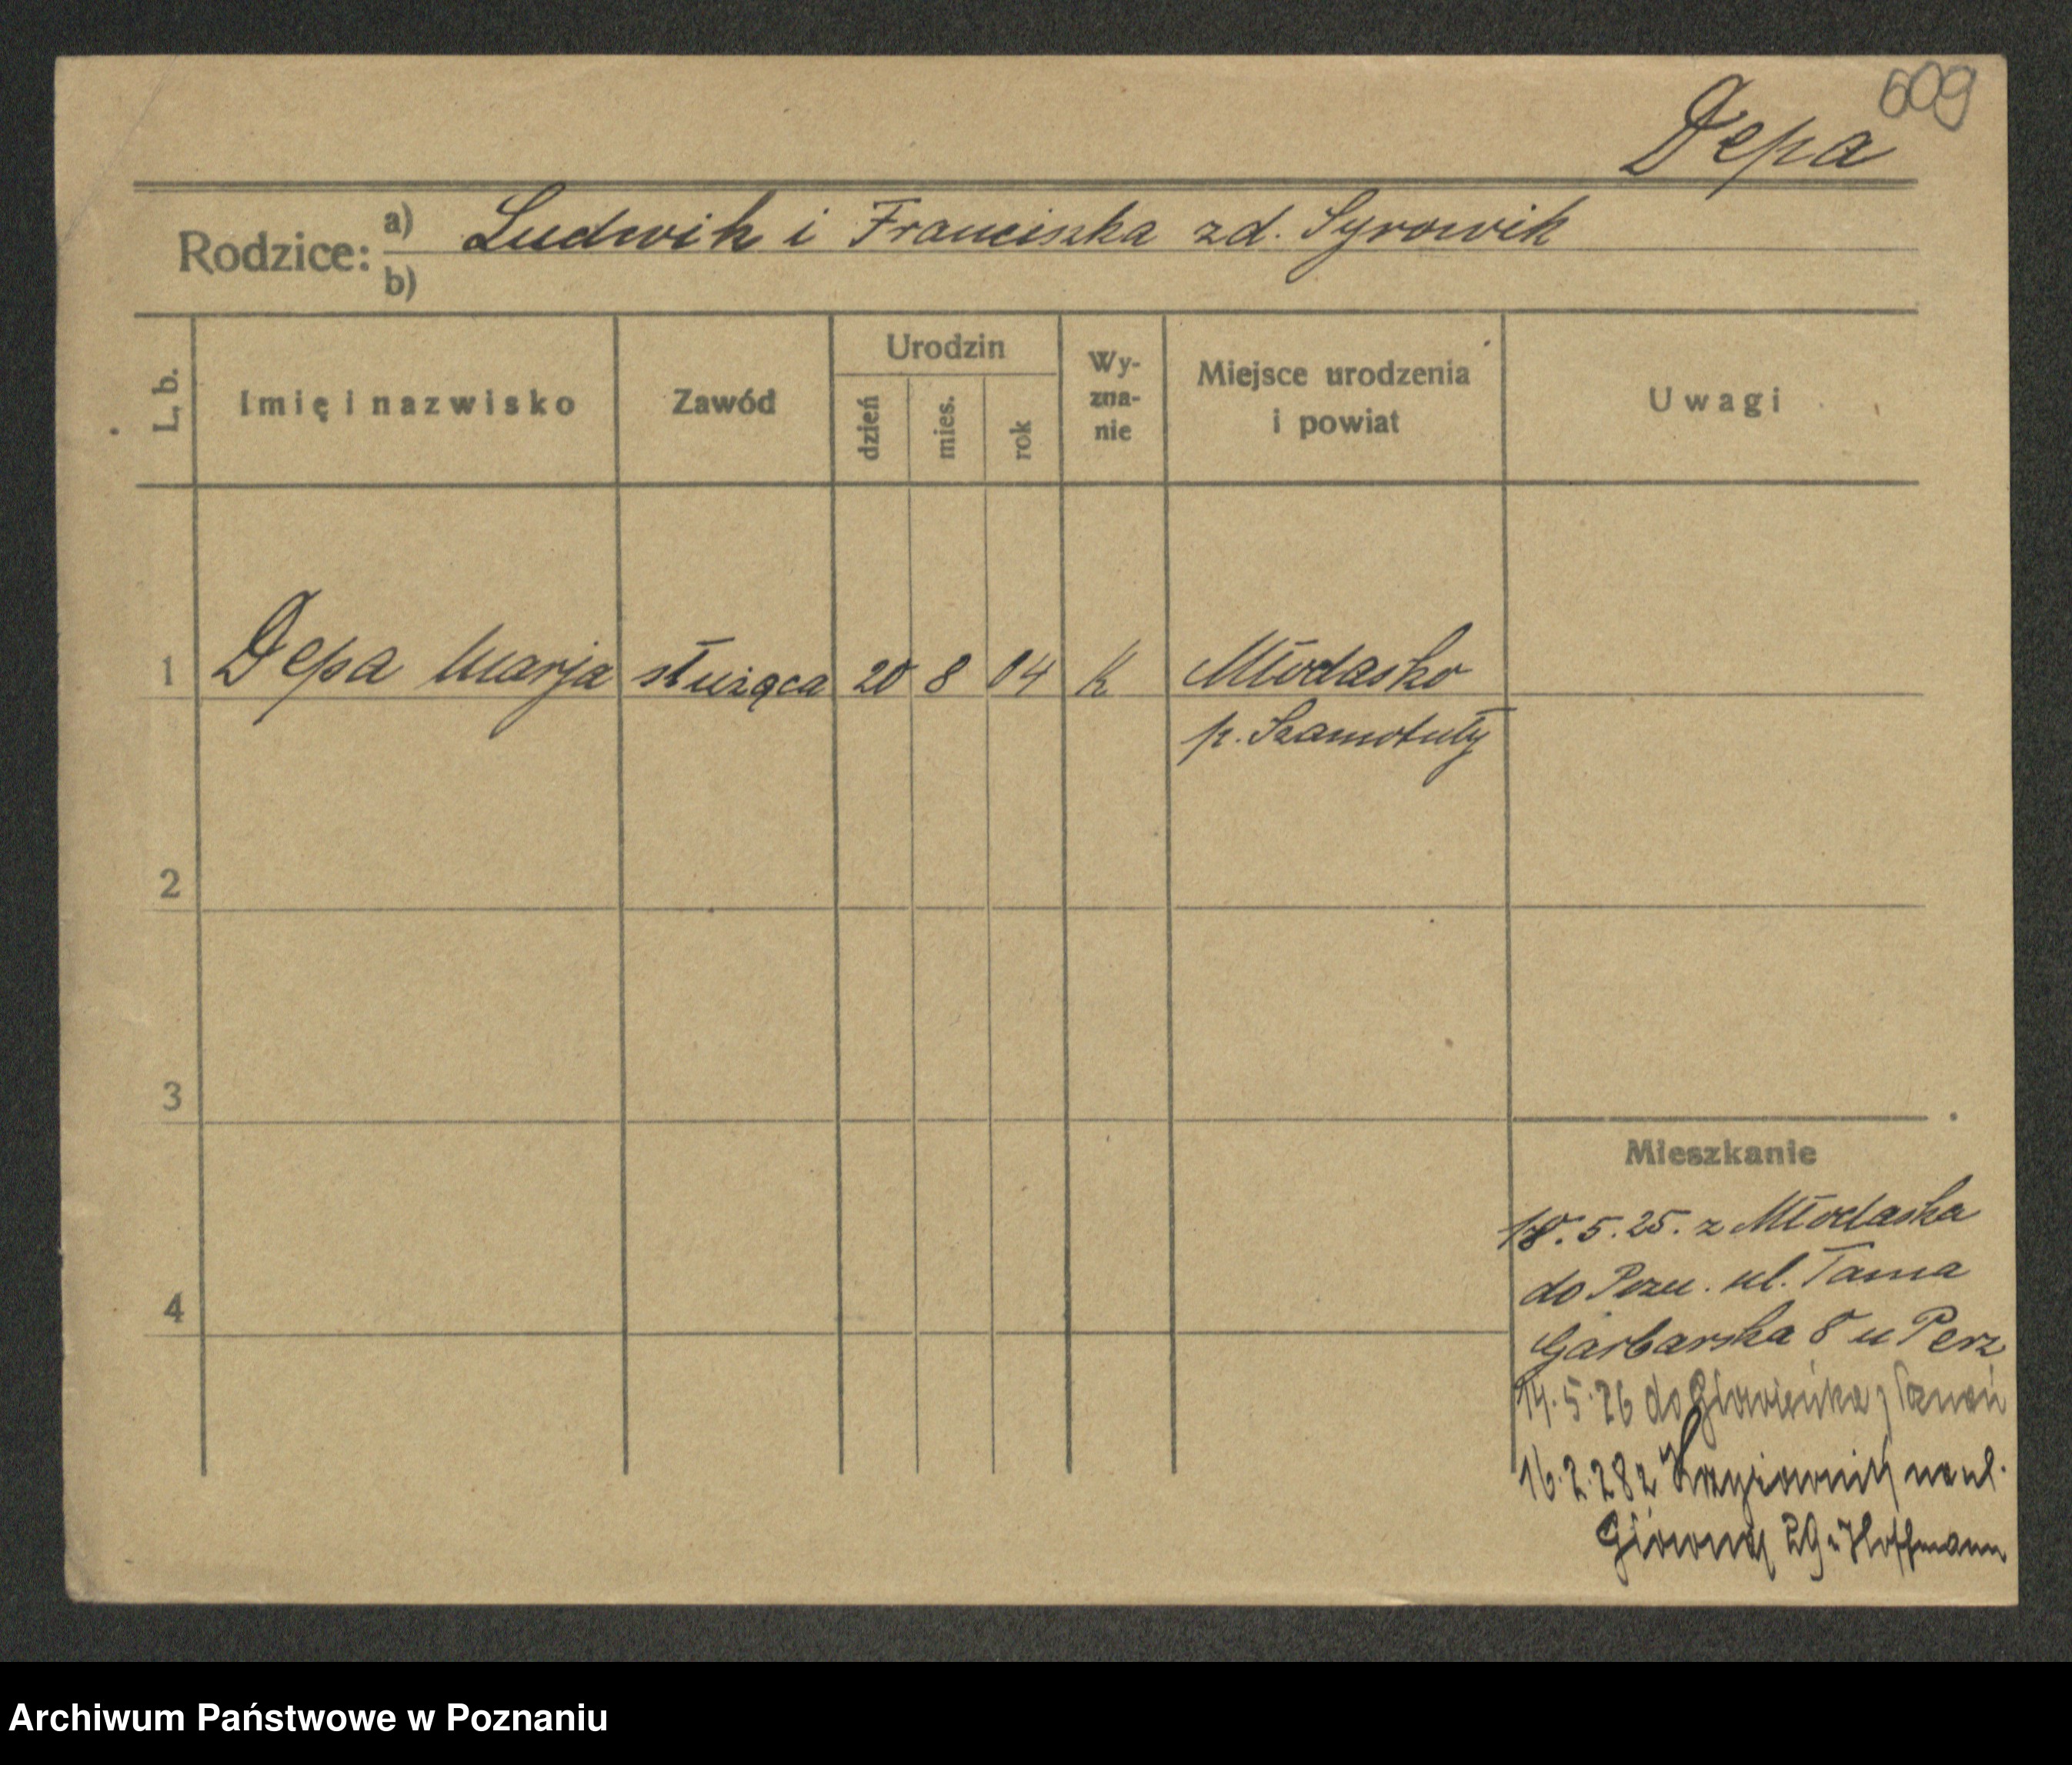 609
Depa
Rodzice: a) Ludwik i Franciszka zd. Syrowik
b)
L. b. Imię i nazwisko Zawód Urodzin dzień mies. rok Wy-zna-nie Miejsce urodzenia i powiat Uwagi
1 Depa Marja służąca 20 8 04 K Młodasko
p. Szamotuły
2
3
Mieszkanie
18. 5. 25. z Młodaska
do Pozn. ul. Tama
4
Garbarska 8 u Perz
14. 5. 26 do Głowieńka, Poznań
16. 2. 28 z Krzyżownik na ul.
Główną 29 u Hoffmann
Archiwum Państwowe w Poznaniu